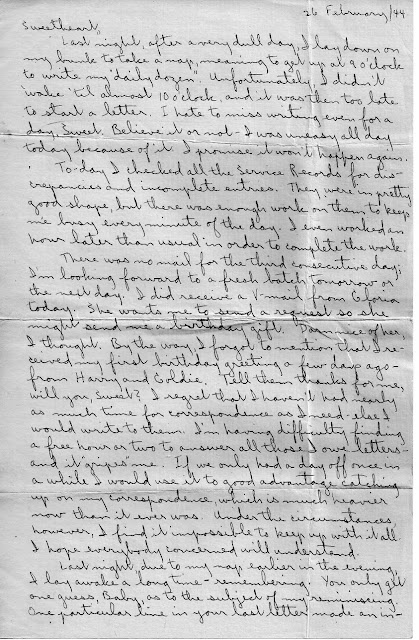 26 February/44
Sweetheart,
Last night, after a very dull day, I lay down on
my bunk to take a nap, meaning to get up at 9 o'clock
to write my "daily dozen". Unfortunately I didn't
wake 'til almost 10 o'clock, and it was then too late
to start a letter. I hate to miss writing even for a
day, Sweet. Believe it or not - I was uneasy all day
today because of it. I promise it won't happen again.
To-day I checked all the Service Records for dis-
crepancies and incomplete entries. They were in pretty
good shape, but there was enough work on them to keep
me busy every minute of the day. I even worked an
hour later than usual in order to complete the work.
There was no mail for the third consecutive day;
I'm looking forward to a fresh batch tomorrow or
the next day. I did receive a V-mail from Gloria
today. She wants me to send a request so she
might send me a birthday gift. Darn nice of her,
I thought. By the way, I forgot to mention that I re-
ceived my first birthday greeting a few days ago -
from Harry and Goldie. Tell them thanks for me,
will you, Sweet? I regret that I haven't had nearly
as much time for correspondence as I need - else I
would write to them. I'm having difficulty finding
a free hour or two to answer all those I owe letters -
and it gripes me. If we only had a day off once in
a while I would use it to good advantage catching
up on my correspondence, which is much heavier
now than it ever was. Under the circumstances,
however, I find it impossible to keep up with it all.
I hope everybody concerned will understand.
Last night, due to my nap earlier in the evening,
I lay awake a long time - remembering. You only get
one guess, Baby, as to the subject of my reminiscing.
One particular line in your last letter made an in-